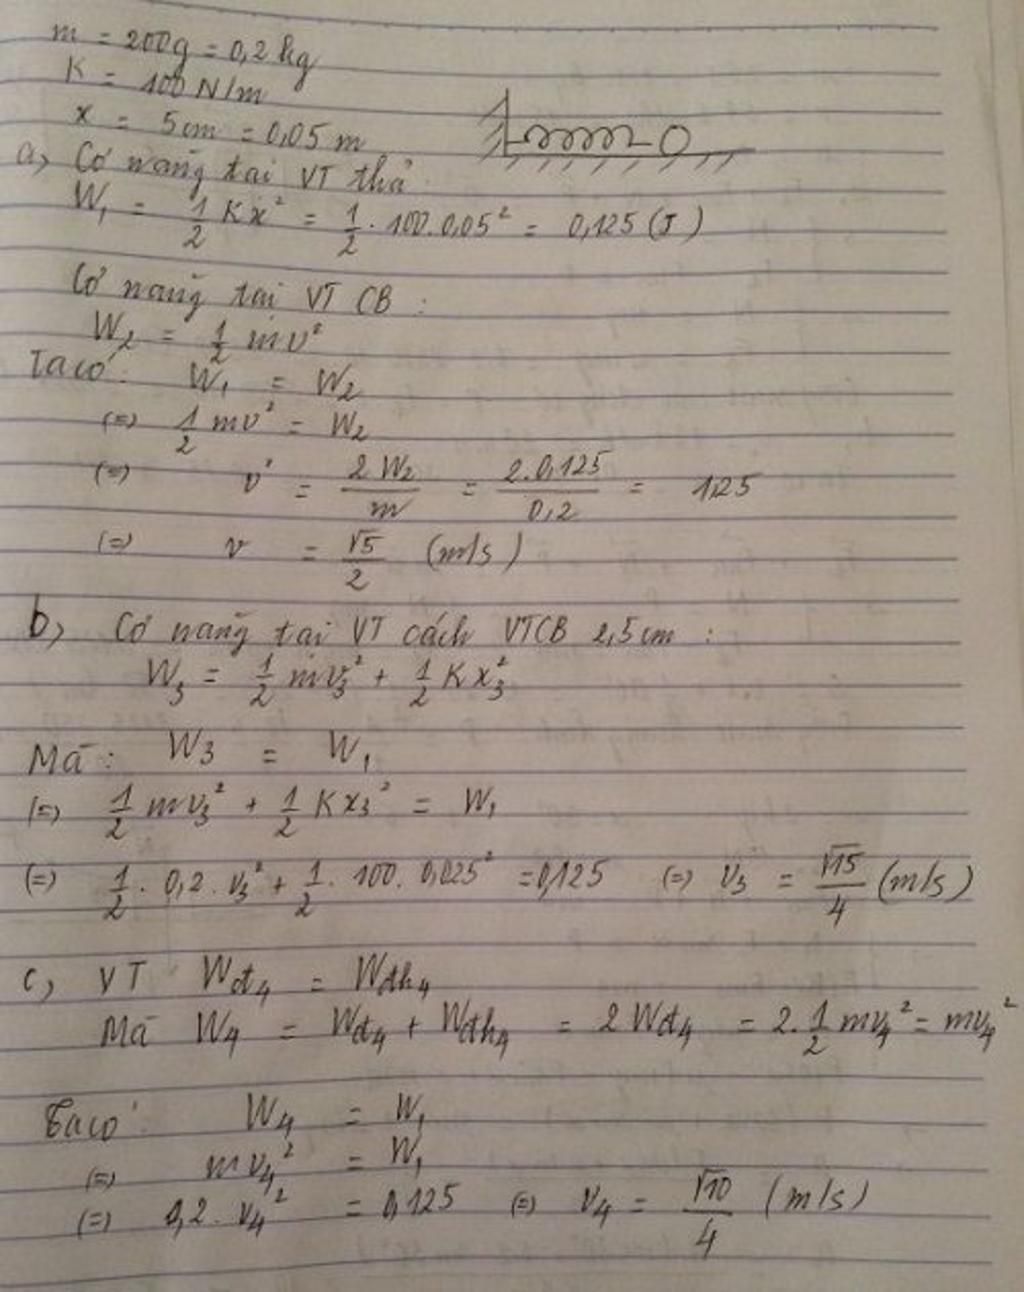 m = 200g = 0,2 kg
K = 100 N/m
x = 5cm = 0,05 m
a, Cơ năng tại VT thả
W₁ = 1/2 Kx² = 1/2 . 100.0,05² = 0,125 (J)
Cơ năng tại VT CB :
W₂ = 1/2 mv²
Ta có : W₁ = W₂
(=) 1/2 mv² = W₂
(=) v² = 2W₂/m = 2.0,125/0,2 = 1,25
(=) v = √5/2 (m/s)
b, Cơ năng tại VT cách VTCB 2,5cm :
W₃ = 1/2 mv₃² + 1/2 Kx₃²
Mà : W₃ = W₁
(=) 1/2 mv₃² + 1/2 Kx₃² = W₁
(=) 1/2 . 0,2 . v₃² + 1/2 . 100. 0,025² = 0,125 (=) v₃ = √15/4 (m/s)
c, VT Wđ₄ = Wđh₄
Mà W₄ = Wđ₄ + Wđh₄ = 2Wđ₄ = 2.1/2 mv₄² = mv₄²
Ta có : W₄ = W₁
(=) mv₄² = W₁
(=) 0,2 . v₄² = 0,125 (=) v₄ = √10/4 (m/s)